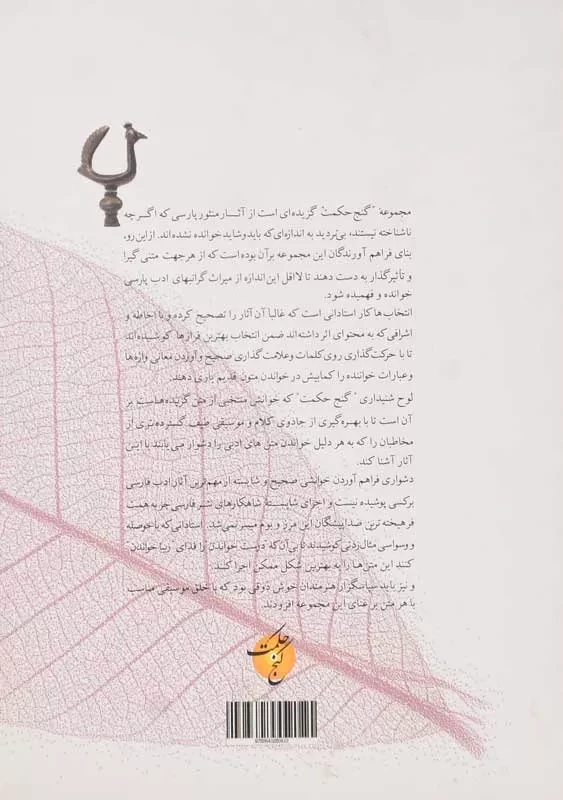 مجموعهٔ "گنج حکمت" گزیده‌ای است از آثار منثور پارسی که اگر چه
ناشناخته نیستند، بی‌تردید به اندازه‌ای که باید و شاید خوانده نشده‌اند. از این رو،
بنای فراهم آورندگان این مجموعه بر آن بوده است که از هر جهت متنی گیرا
و تأثیرگذار به دست دهند تا لااقل این اندازه از میراث گرانبهای ادب پارسی
خوانده و فهمیده شود.
انتخاب‌ها کار استادانی است که غالباً آن آثار را تصحیح کرده و با احاطه و
اشرافی که به محتوای اثر داشته‌اند ضمن انتخاب بهترین فرازها کوشیده‌اند
تا با حرکت‌گذاری روی کلمات و علامت‌گذاری صحیح و آوردن معانی واژه‌ها
و عبارات خواننده را کمابیش در خواندن متون قدیم یاری دهند.
لوح شنیداری "گنج حکمت" که خوانشی منتخبی از متن گزیده‌هاست بر
آن است تا با بهره‌گیری از جادوی کلام و موسیقی طیف گسترده‌تری از
مخاطبان را که به هر دلیل خواندن متن های ادبی را دشوار می‌یابند با این
آثار آشنا کند.
دشواری فراهم آوردن خوانشی صحیح و شایسته از مهم‌ترین آثار ادب فارسی
بر کسی پوشیده نیست و اجرای شایستهٔ شاهکارهای نثر فارسی جز به همت
فرهیخته ترین صداپیشگان این مرز و بوم میسر نمی‌شد. استادانی که با حوصله
و وسواسی مثال‌زدنی کوشیدند تا بی آن که "درست خواندن" را فدای "زیبا خواندن"
کنند این متن‌ها را به بهترین شکل ممکن اجرا کنند.
و نیز باید سپاسگزار هنرمندان خوش ذوقی بود که با خلق موسیقی مناسب
با هر متن بر غنای این مجموعه افزودند.
گنج حکمت